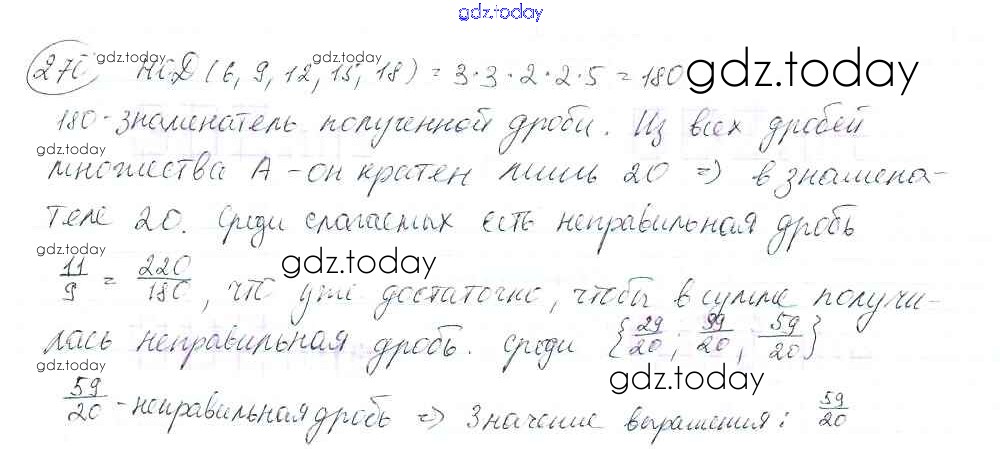 gdz.today
270, НОД (6, 9, 12, 15, 18) = 3·3·2·2·5 = 180
gdz.today gdz.today gdz.today
180 - знаменатель полученной дроби. Из всех дробей
gdz.today gdz.today
множества A - он кратен лишь 20 => в знамена-
теле 20. Среди слагаемых есть неправильная дробь
gdz.today gdz.today gdz.today
11/9 = 220/180, что уже достаточно, чтобы в сумме получи-
лась неправильная дробь. Среди {29/20; 39/20, 59/20}
gdz.today gdz.today
59/20 - неправильная дробь => Значение выражения: 59/20